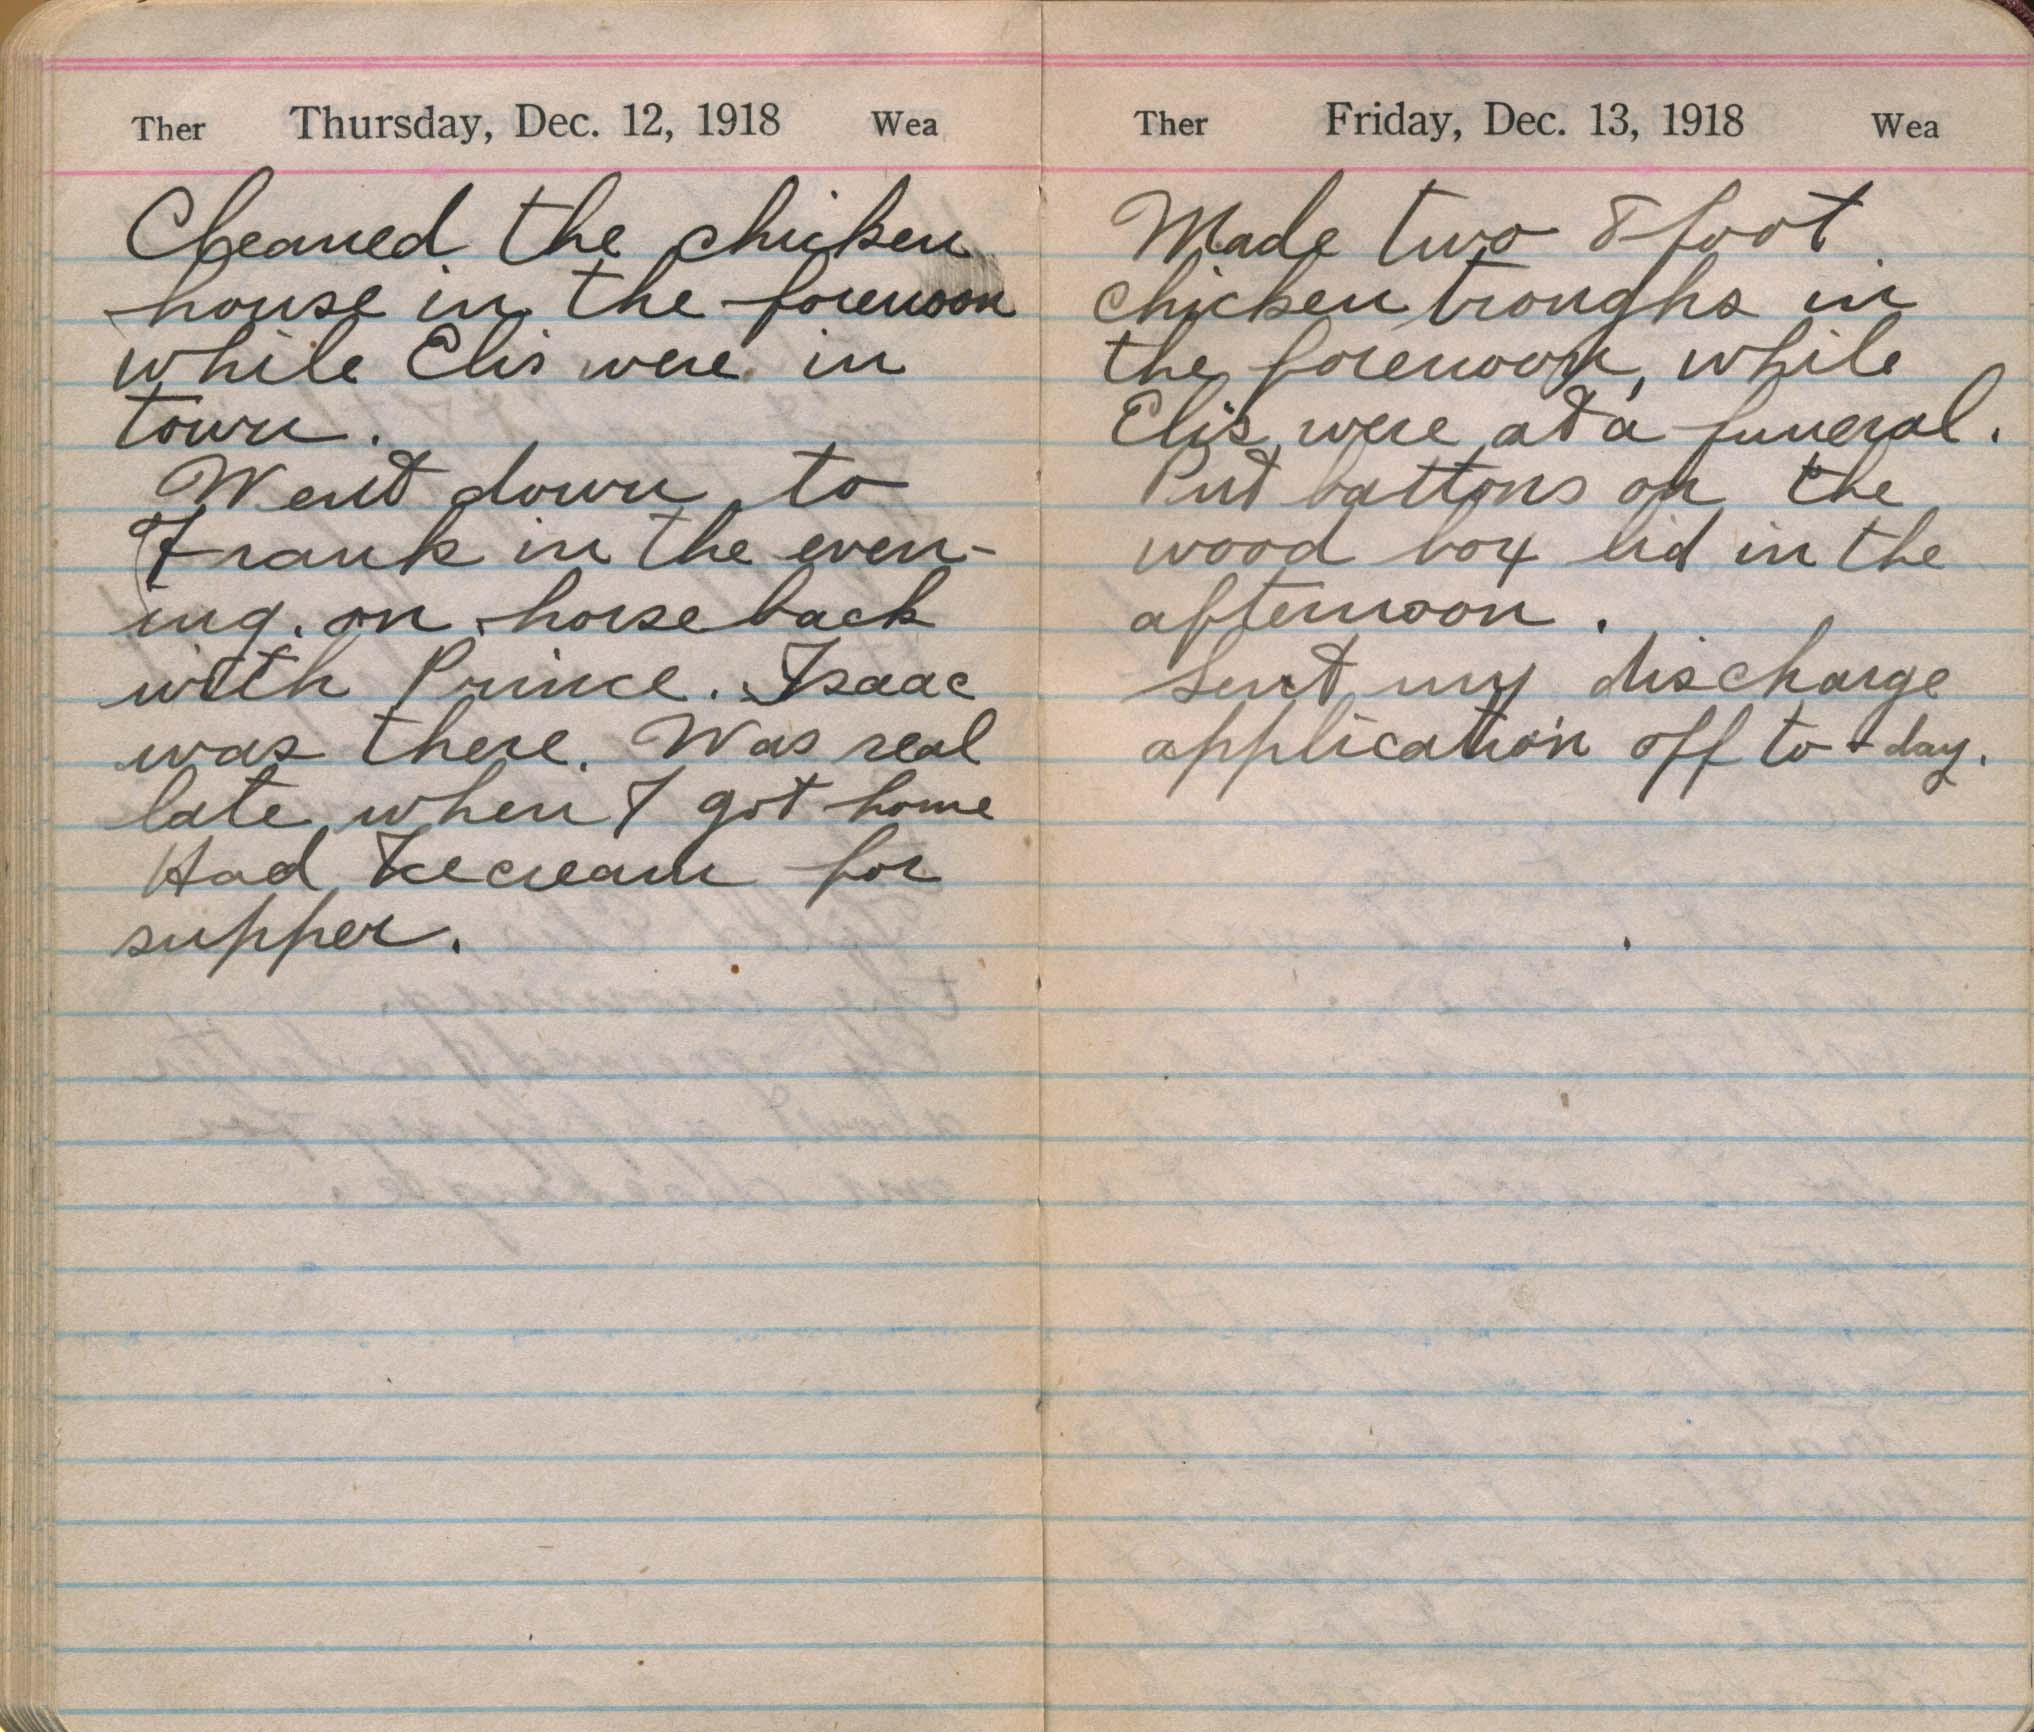 Ther Thursday, Dec. 12, 1918 Wea
Cleaned the chicken
house in the forenoon
while Elis were in
town.
Went down to
Frank in the even-
ing. on horseback
with Prince. Isaac
was there. Was real
late when I got home
Had Icecream for
supper.
Ther Friday, Dec. 13, 1918 Wea
Made two 8 foot
chicken troughs in
the forenoon, while
Elis were at a funeral.
Put battons on the
wood box lid in the
afternoon.
Sent my discharge
application off to-day.